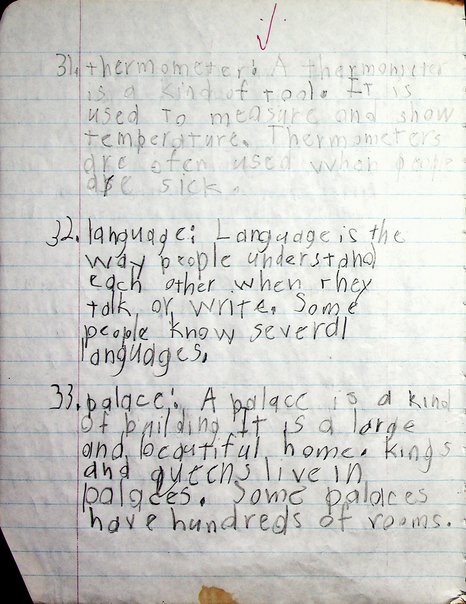 31. thermometer: A thermometer
is a kind of tool. It is
used to measure and show
temperature. Thermometers
are often used when people
are sick.
32. language: Language is the
way people understand
each other when they
talk or write. Some
people know several
languages.
33. palace: A palace is a kind
of building It is a large
and beautiful home. Kings
and queens live in
palaces. Some palaces
have hundreds of rooms.